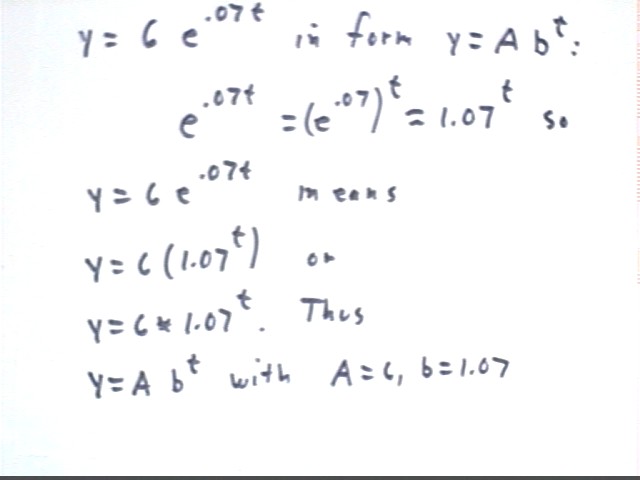 y = 6 e^.07t in form y = A b^t:
e^.07t = (e^.07)^t = 1.07^t so
y = 6 e^.07t means
y = 6 (1.07^t) or
y = 6 * 1.07^t. Thus
y = A b^t with A = 6, b = 1.07